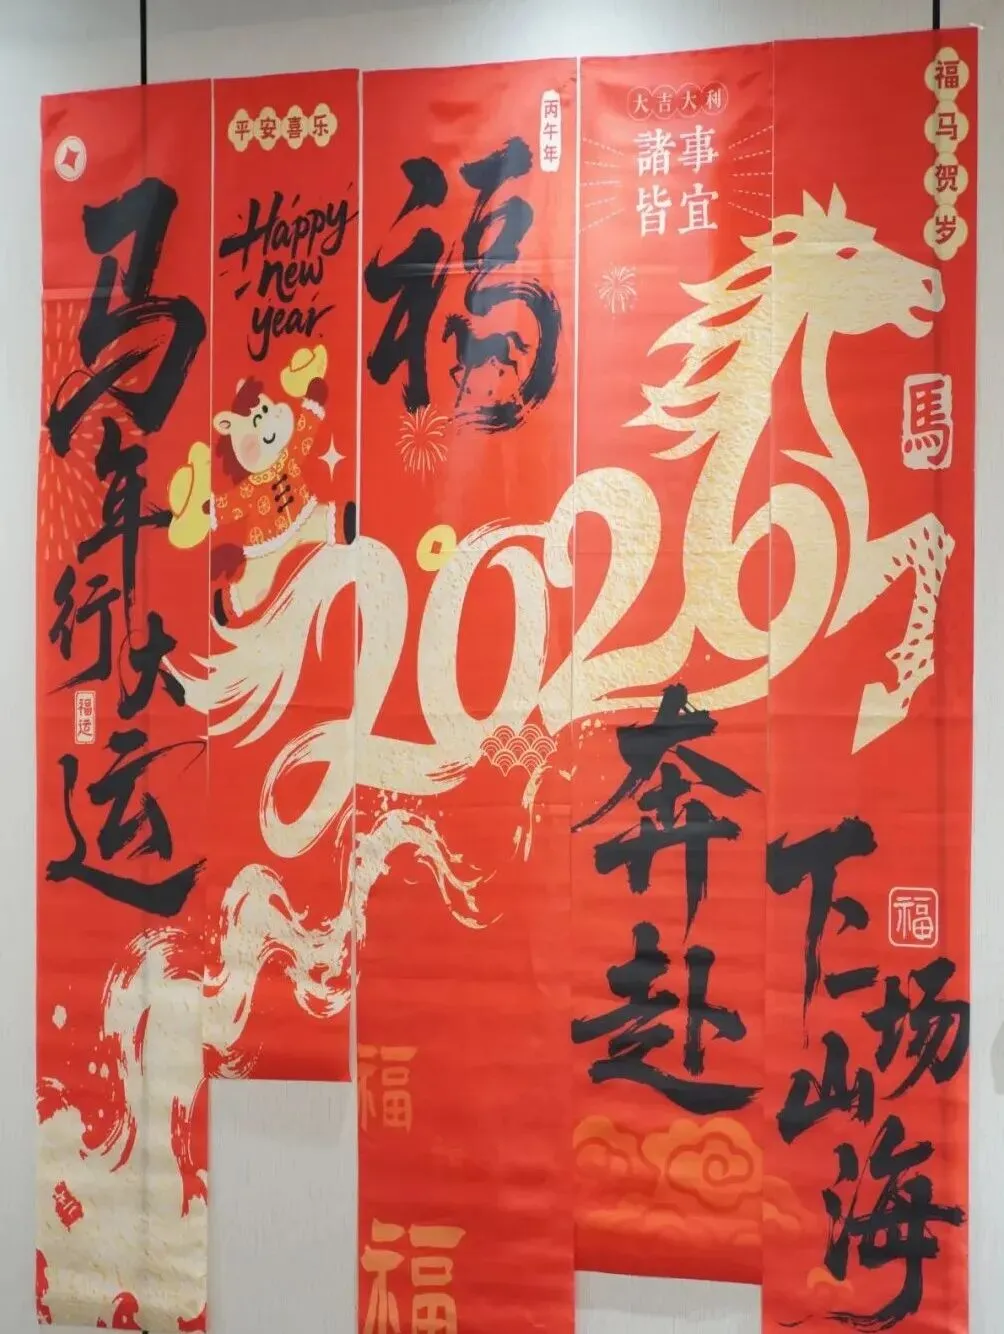 马年行大运
福运
平安喜乐
Happy
new
year
丙午年
福
2026
福
福
大吉大利
諸事
皆宜
奔赴
福马贺岁
馬
下一场
山海
福